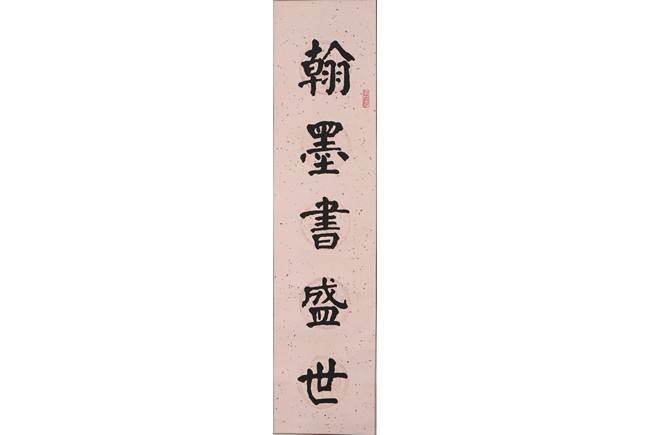 翰墨書盛世